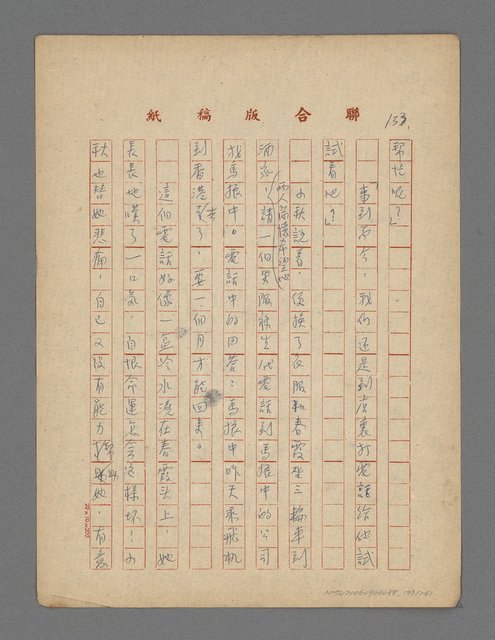 聯合版稿紙
133.
幫忙呢?」
「事到如今,我們還是到店裏打電話給他試
試看吧!」
小秋說着,便換了衣服和春霞坐三輪車到
酒家,請一個男服務生代電話到馬振中的公司
兩人滿懷希望地
找馬振中。電話中的回答:馬振中昨天乘飛機
到香港去了,要一個月才能回來。
這個電話好像一盆冷水澆在春霞頭上,她
長長地嘆了一口氣,自恨命運怎會這樣坏!小
秋也替她悲痛,自己又沒有能力幫助她,有意
20×10=200